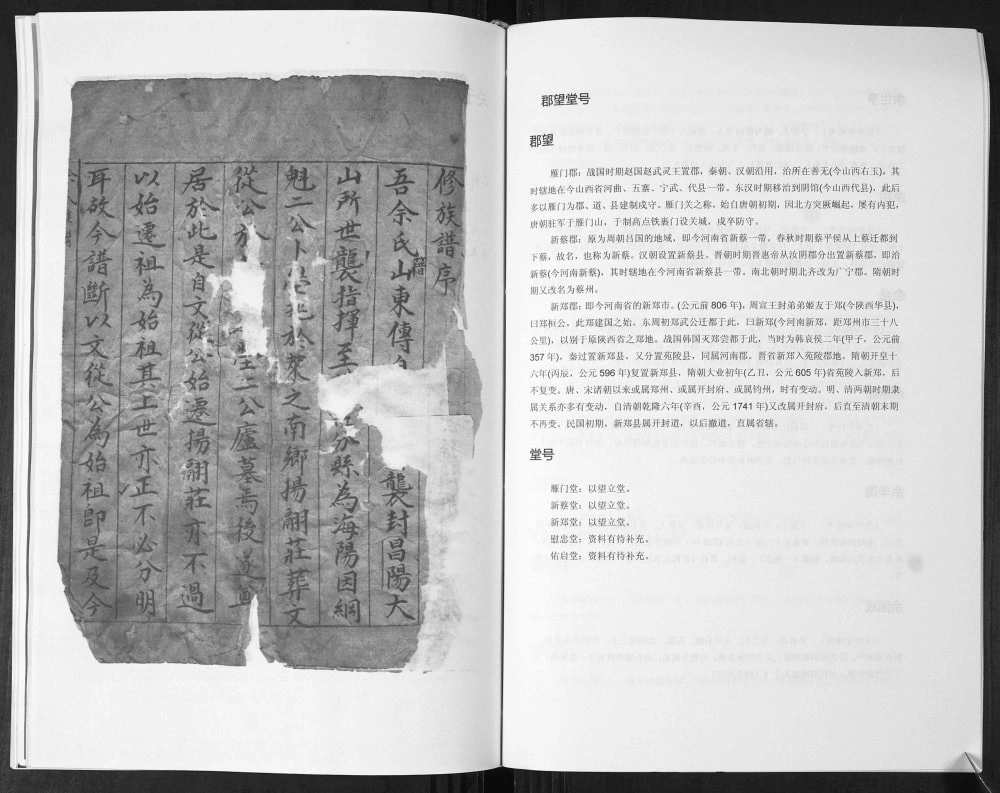 修族譜序
吾余氏籍山東傳自
襲封昌陽大
山所世襲指揮至
分縣為海陽因綱
魁二公卜
於萊之南鄉揚翮莊葬文
從公於
二公廬墓焉後遂
居於此是自文從公始遷揚翮莊亦不過
以始遷祖為始祖其上世亦正不必分明
耳故今譜斷以文從公為始祖即是及今
郡望堂号
郡望
雁门郡：战国时期赵国赵武灵王置郡，秦朝、汉朝沿用，治所在善无(今山西右玉)，其
时辖地在今山西省河曲、五寨、宁武、代县一带。东汉时期移治到阴馆(今山西代县)，此后
多以雁门为郡、道、县建制戍守。雁门关之称，始自唐朝初期，因北方突厥崛起，屡有内犯，
唐朝驻军于雁门山，于制高点铁裹门设关城，戍卒防守。
新蔡郡：原为周朝吕国的地域，即今河南省新蔡一带。春秋时期蔡平侯从上蔡迁都到
下蔡，故名，也称为新蔡。汉朝设置新蔡县。晋朝时期晋惠帝从汝阴郡分出置新蔡郡，即治
新蔡(今河南新蔡)，其时辖地在今河南省新蔡县一带。南北朝时期北齐改为广宁郡。隋朝时
期又改名为蔡州。
新郑郡：即今河南省的新郑市。(公元前 806 年)，周宣王封弟弟姬友于郑(今陕西华县)，
曰郑桓公，此郑建国之始。东周初郑武公迁都于此，曰新郑(今河南新郑，距郑州市三十八
公里)，以别于原陕西省之郑地。战国韩国灭郑尝都于此，当时为韩哀侯二年(甲子，公元前
357 年)，秦过置新郑县，又分置苑陵县，同属河南郡。晋省新郑入苑陵郡地。隋朝开皇十
六年(丙辰，公元 596 年)复置新郑县，隋朝大业初年(乙丑，公元 605 年)省苑陵入新郑，后
不复变。唐、宋诸朝以来或属郑州、或属开封府、或属钧州，时有变动。明、清两朝时期隶
属关系亦多有变动，自清朝乾隆六年(辛酉，公元 1741 年)又改属开封府，后直至清朝末期
不再变。民国初期，新郑县属开封道，以后撤道，直属省辖。
堂号
雁门堂：以望立堂。
新蔡堂：以望立堂。
新郑堂：以望立堂。
慰忠堂：资料有待补充。
佑启堂：资料有待补充。